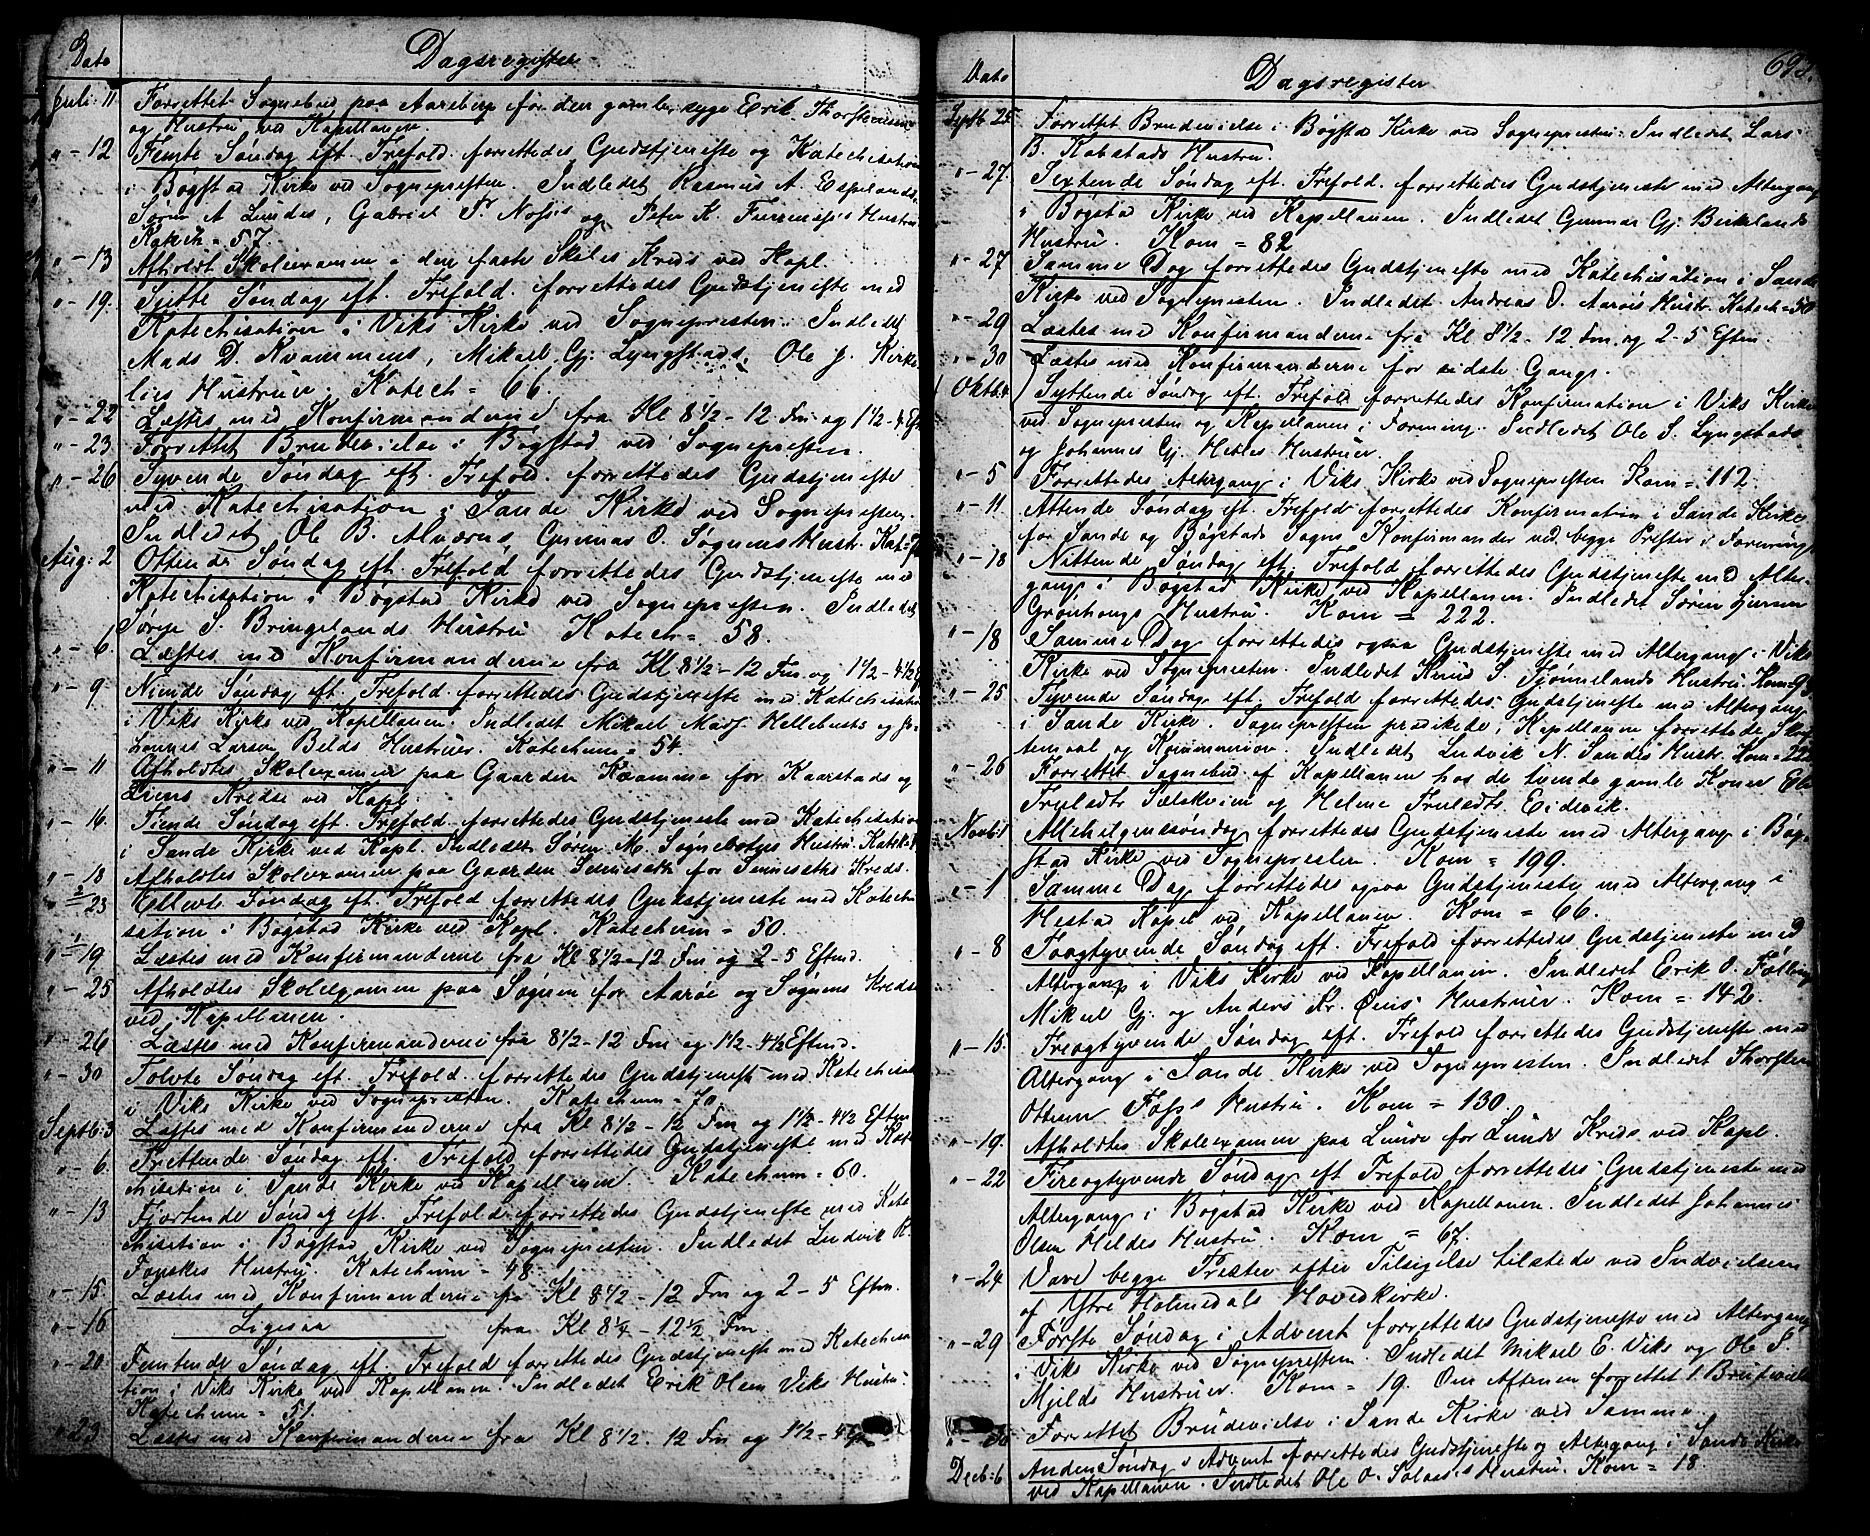 Dato
Dagsregister
Juli 11
Forrettet Sognebud paa Aaseberg for den gamle syge Erik Thorstensen
og Hustru ved Kapellanen.
" - 12
Femte Søndag eft. Trefold. forrettedes Gudstjeneste og Katechisation
i Bøgstad Kirke ved Sognepresten. Indledet Rasmus A. Espelands
Søren A Lundes, Gabriel P. og Peter K. Hustru
Katech = 57.
" - 13
Afholdt Skoleexamen i den faste Skoles Kreds ved Kapl.
" - 19.
Sjette Søndag eft. Trefold. forrettedes Gudstjeneste med
Katechisation i Viks Kirke ved Sognepresten. Indledet
Mads D. Kvammens, Mikael Gj. Lyngstads, Ole J. Kirke
lies Hustruer. Katech = 66
" - 22
Læstes med Konfirmanderne fra Kl 8 1/2 - 12 Fm og 1 1/2 - 4 Eft
" - 23.
Forrettet Brudevielse i Bøgstad ved Sognepresten.
" - 26
Syvende Søndag eft. Trefold. forrettedes Gudstjeneste
med Katechisation i Sande Kirke ved Sognepresten.
Indledet Ole B. Alværns, Gunnar O. Søgnens Hustr. Kat =
Aug: 2
Ottende Søndag eft. Trefold forrettedes Gudstjeneste med
Katechisation i Bøgstad Kirke ved Sognepresten. Indledet
Børge S. Bringelands Hustru Katech = 58.
" - 6.
Læstes med Konfirmanderne fra Kl 8 1/2 - 12 Fm og 1 1/2 - 4 1/2 E
" - 9.
Niende Søndag eft. Trefold. forrettedes Gudstjeneste med Katechisation
i Viks Kirke ved Kapellanen. Indledet Mikael Mads Hellebusts og Jo-
hannes Larsen Bilds Hustruer. Katechum = 54
" - 11
Afholdtes Skoleexamen paa Gaarden Kvamme for Kaarstads og
Liens Kredse ved Kapl.
" - 16.
Tiende Søndag eft. Trefold. forrettedes Gudstjeneste med Katechisation
i Sande Kirke ved Kapl. Indledet Søren M. Søgnebotns Hustru. Katek
" - 18
Afholdtes Skoleexamen paa Gaarden Sennesæth for Sennesæths Kreds.
" 2/ 23
Ellevte Søndag eft. Trefold forrettedes Gudstjeneste med Katechi
sation i Bøgstad Kirke ved Kapl. Katechum = 50.
" 1/ 19
Læstes med Konfirmanderne fra Kl 8 1/2 - 12 Fm og 2 - 5 Eftmd.
" - 25
Afholdtes Skoleexamen paa Søgnen for Aarøe og Søgnens Kredse
ved Kapellanen.
" - 26
Læstes med Konfirmanderne fra 8 1/2 - 12 Fm og 1 1/2 - 4 1/2 Eftmd.
" - 30
Tolvte Søndag eft. Trefold. forrettedes Gudstjeneste med Katechisat
i Viks Kirke ved Sognepresten. Katechum = 70.
Septb: 3
Læstes med Konfirmanderne fra Kl 8 1/2 - 12 Fm og 1 1/2 - 4 1/2 Eftm
" - 6.
Trettende Søndag eft. Trefold forrettedes Gudstjeneste med Kate
chisation i Sande Kirke ved Kapellanen. Katechum = 60.
" - 13
Fjortende Søndag eft. Trefold. forrettedes Gudstjeneste med Kate
chisation i Bøgstad Kirke ved Sognepresten. Indledet Ludvik R.
Fonskes Hustru. Katechum = 48
" - 15
Læstes med Konfirmanderne fra Kl 8 1/2 - 12 Fm og 2 - 5 Eftm.
" - 16
Ligesaa fra Kl 8 1/4 - 12 1/2 Fm.
" - 20.
Femtende Søndag eft. Trefold forrettedes Gudstjeneste med Katechisa
tion i Viks Kirke ved Kapellanen. Indledet Erik Olsen Viks Hustru
Katechum = 51.
" 23
Læstes med Konfirmanderne fra Kl 8 1/2 - 12 Fm og 1 1/2 - 4
693.
Dato
Dagsregister
Septb 25
Forrettet Brudevielse i Bøgstad Kirke ved Sognepresten. Indledet Lars
B. Kobstads Hustru.
" - 27.
Sextende Søndag eft. Trefold. forrettedes Gudstjeneste med Altergang
i Bøgstad Kirke ved Kapellanen. Indledet Gunnar Gj. Birkelands
Hustru. Kom = 82
" - 27
Samme Dag forrettedes Gudstjeneste med Katechisation i Sande
Kirke ved Sognepresten. Indledet Andreas O. Aarøis Hustr. Katech = 50
" - 29
Læstes med Konfirmanderne fra Kl 8 1/2 - 12 Fm og 2 - 5 Eftm.
" - 30
Læstes med Konfirmanderne for sidste Gang.
Oktbr 4
Syttende Søndag eft. Trefold forrettedes Konfirmation i Viks Kirke
ved Sognepresten og Kapellanen i Forening. Indledet Ole S. Lyngstads
og Johannes Gj. Hebles Hustruer.
" - 5
Forrettedes Altergang i Viks Kirke ved Sognepresten Kom = 112.
" - 11
Attende Søndag eft. Trefold. forrettedes Konfirmation i Sande Kirke
for Sande og Bøgstads Sogns Konfirmander ved begge Prester i Forening.
" - 18
Nittende Søndag eft. Trefold forrettedes Gudstjeneste med Alter-
gang i Bøgstad Kirke ved Kapellanen. Indledet Søren
Grønhaugs Hustru. Kom = 222.
" - 18
Samme Dag forrettedes ogsaa Gudstjeneste med Altergang i Viks
Kirke ved Sognepresten. Indledet Knud S. Tjønnelands Hustru. Kom =
" - 25
Tyvende Søndag eft. Trefold forrettedes Gudstjeneste med Altergang
i Sande Kirke. Sognepresten prædikede, Kapellanen forrettede Skrif
temaal og Kommunion. Indledet Ludvik N. Sandes Hustr. Kom = 222
" - 26
Forrettet Sognebud af Kapellanen hos de tvende gamle Koner
Trulsdtr Sælskviien og Helene Trulsdtr Eidevik.
Novb: 1
Allehelgenssøndag forrettedes Gudstjeneste med Altergang i Bøg-
stad Kirke ved Sognepresten. Kom = 199.
" - 1
Samme Dag forrettedes ogsaa Gudstjeneste med Altergang i
Hestad Kapel ved Kapellanen. Kom = 66.
" - 8
Toogtyvende Søndag eft. Trefold forrettedes Gudstjeneste med
Altergang i Viks Kirke ved Kapellanen. Indledet Erik O.
Mikael Gj. og Anders Kr. Øens Hustruer. Kom = 142.
" - 15.
Treogtyvende Søndag eft. Trefold forrettedes Gudstjeneste med
Altergang i Sande Kirke ved Sognepresten. Indledet Thorsten
Ottesen Foss's Hustru. Kom = 130.
" - 19.
Afholdtes Skoleexamen paa Lunde for Lunde Kreds ved Kapl.
" - 22
Fireogtyvende Søndag eft Trefold forrettedes Gudstjeneste med
Altergang i Bøgstad Kirke ved Kapellanen. Indledet Johannes
Olsen Hildes Hustru. Kom = 67.
" - 24
Vare begge Prester efter Tilsigelse tilstede ved Indvielsen
af Ytre Holmedals Hovedkirke.
" - 29
Første Søndag i Advent forrettedes Gudstjeneste med Altergang
i Viks Kirke ved Sognepresten. Indledet Mikael E. Viks og Ole S.
Mjelds Hustruer. Kom = 19. Om Aftenen forrettet 1 Brudeviels
" - 30
Forrettet Brudevielse i Sande Kirke ved Samme.
Decb: 6
Anden Søndag i Advent forrettedes Gudstjeneste og Altergang i Sande Kirke
ved Kapellanen. Indledet Ole O. Solaas's Hustru. Kom = 18